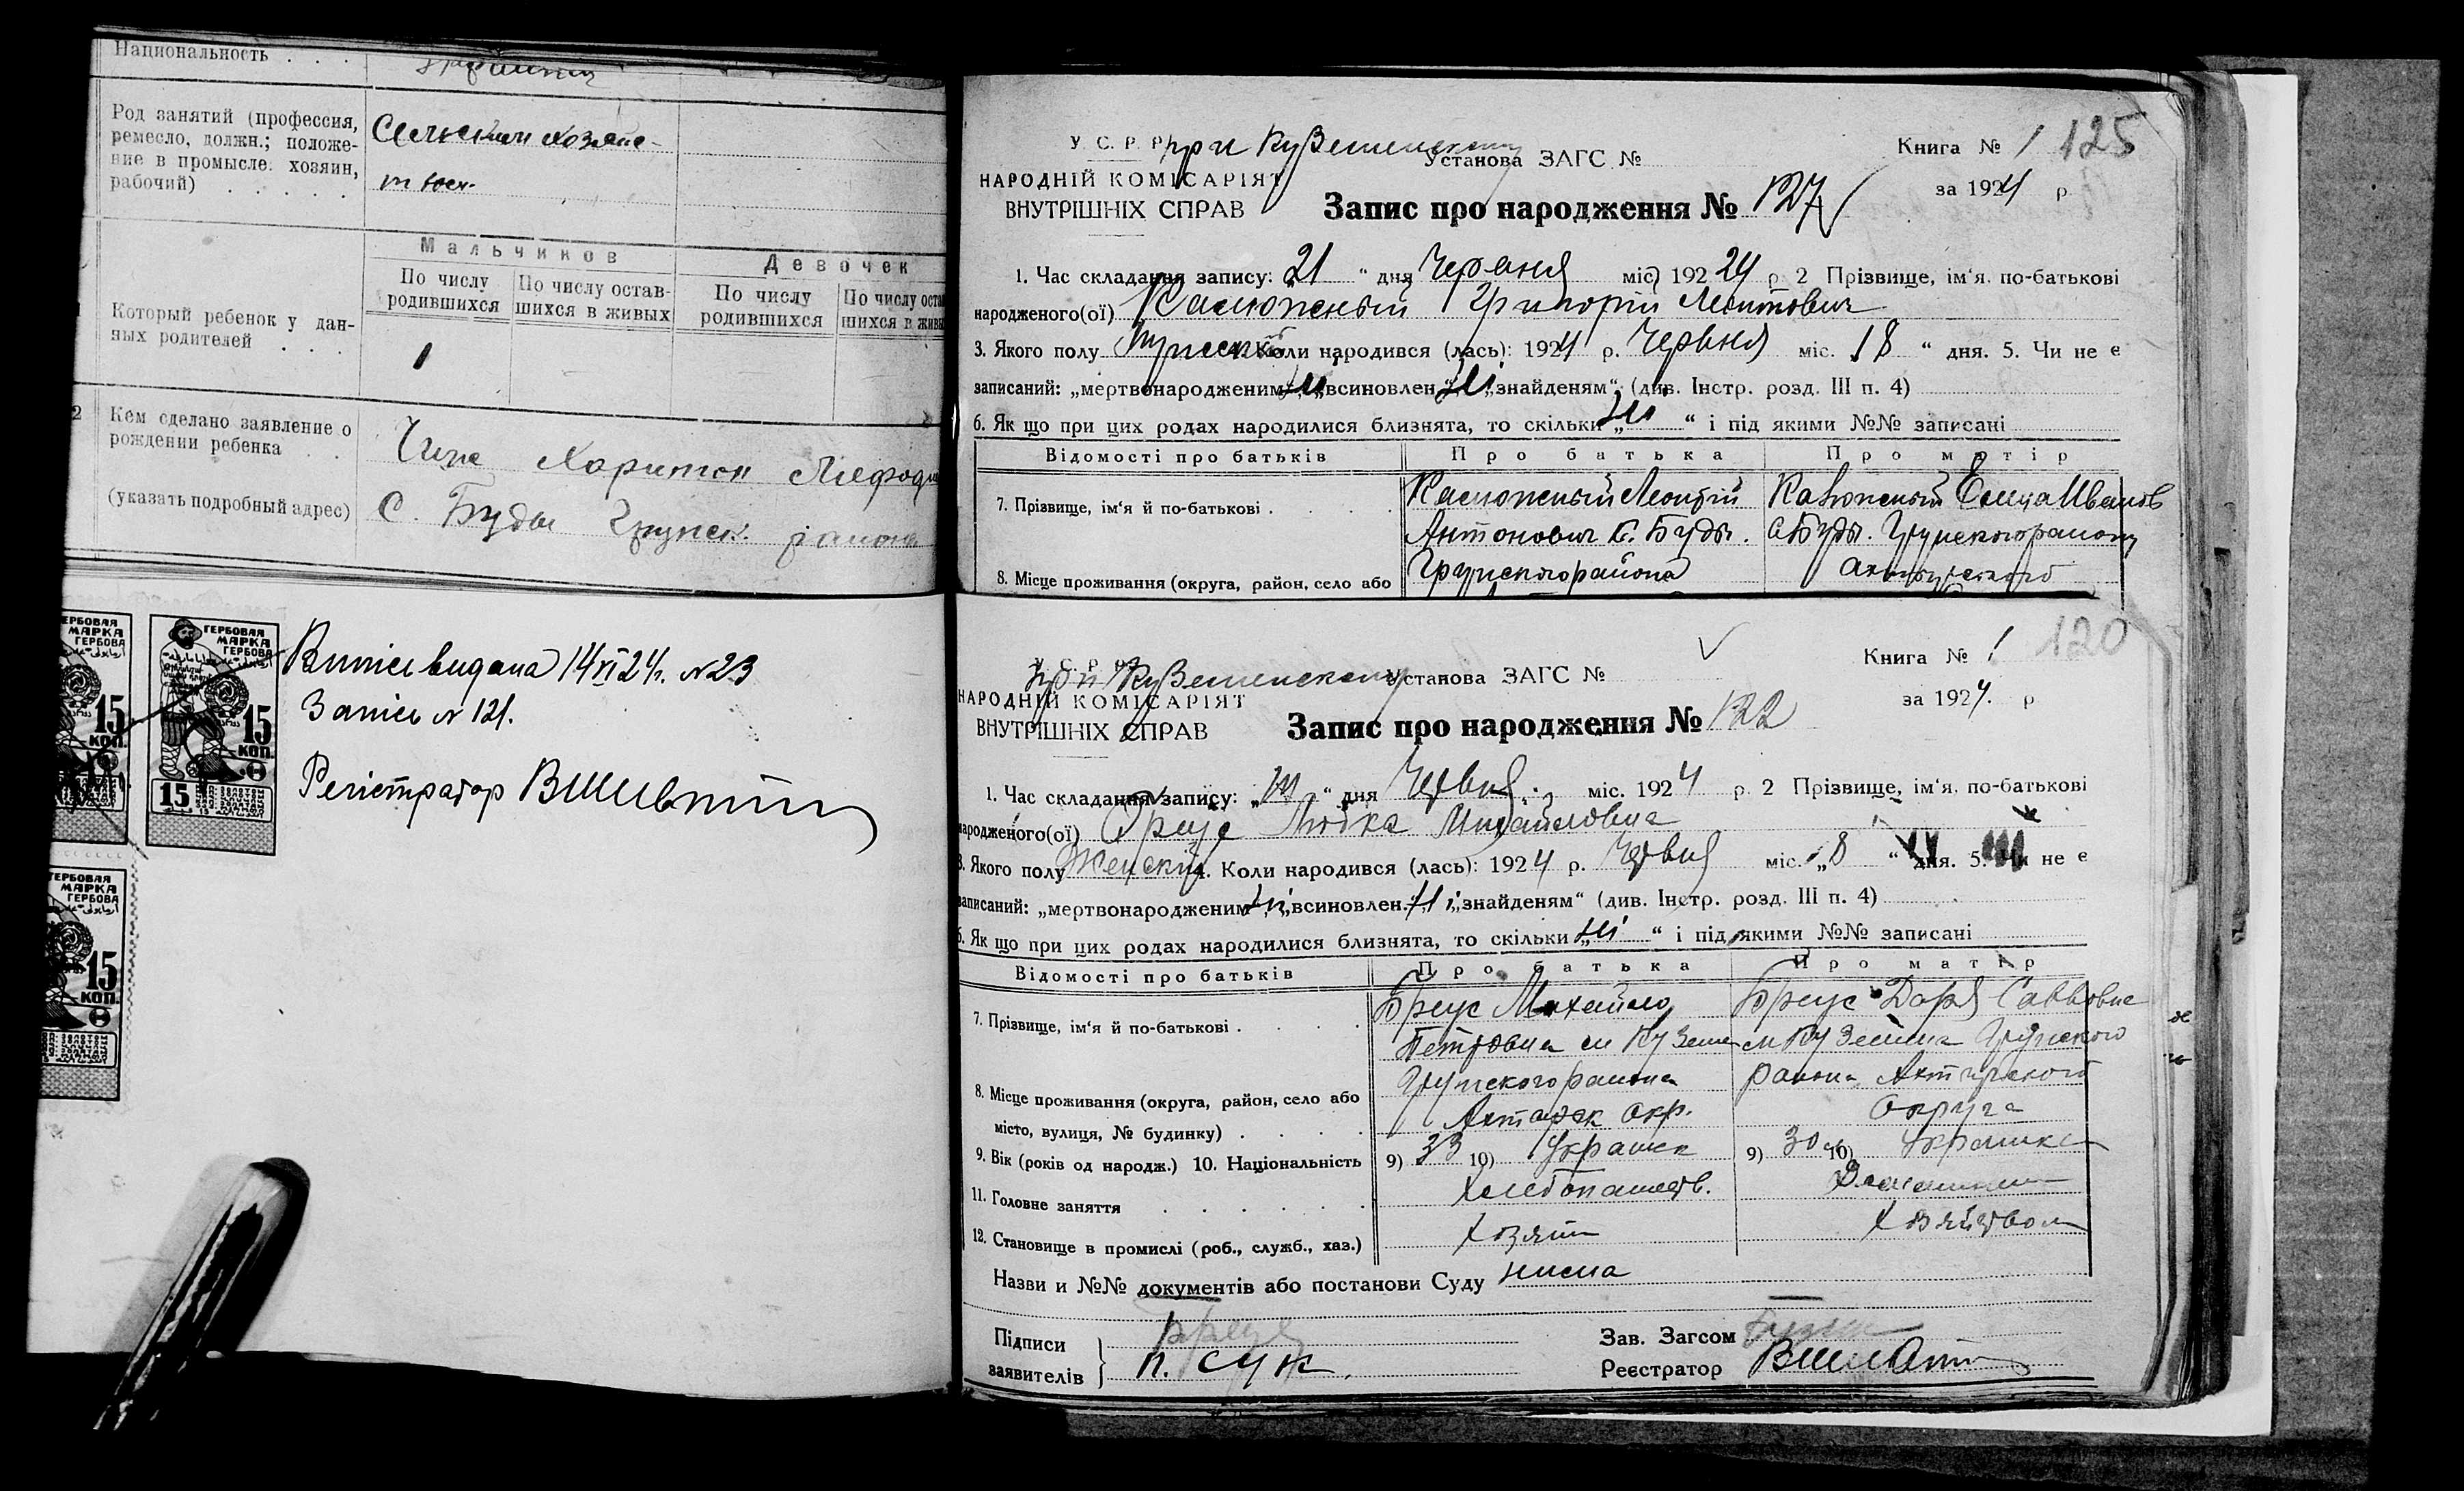 Национальность . . .
Род занятий (профессия,
ремесло, должн.; положе-
ние в промысле: хозяин,
рабочий) . . . . .
Сельским хозяйс-
твом.
Мальчиков
Девочек
По числу
родившихся
По числу остав-
шихся в живых
По числу
родившихся
По числу оста
шихся в живы
Который ребенок у дан-
ных родителей . . .
1
2
Кем сделано заявление о
рождении ребенка . .
(указать подробный адрес)
Харитон Мефоди
С. Буды Грунск. района
ГЕРБОВАЯ
МАРКА
ГЕРБОВА
15
КОП.
15
ГЕРБОВАЯ
МАРКА
ГЕРБОВА
15
КОП.
ГЕРБОВАЯ
МАРКА
ГЕРБОВА
15
КОП.
Витісь видана 14 VI 24 г. № 23
Запісь № 121.
Регістратор
125
У. С. Р. Р.
при Куземенском
Установа ЗАГС №
Книга № 1
НАРОДНІЙ КОМІСАРІЯТ
ВНУТРІШНІХ СПРАВ
за 1924 р
Запис про народження № 127
1. Час складання запису: 21 " дня Червня міс. 192 24 р 2 Прізвище, ім'я. по-батькові
народженого(ої) Калюжный Григорій Леонтович
3. Якого полу Мужск. 4. Коли народився (лась): 1924 р. Червня міс. 18 " дня. 5. Чи не є
записаний: „мертвонародженим" ні „всиновлен." ні „знайденям" (див. Інстр. розд. III п. 4)
6. Як що при цих родах народилися близнята, то скільки „ ні " і під якими №№ записані
Відомості про батьків
Про батька
Про матір
7. Прізвище, ім'я й по-батькові . . . .
Калюжный Леонтій
Антонович С. Буды.
Грунского района
Калюжный Елена Иванов
с Буды. Грунского району
Ахтырского
8. Місце проживання (округа, район, село або
120
У. С. Р. Р.
при Куземенском
Установа ЗАГС №
Книга № 1
НАРОДНІЙ КОМІСАРІЯТ
ВНУТРІШНІХ СПРАВ
за 1924. р
Запис про народження № 122
1. Час складання запису: „ " дня Червня міс. 1924 р. 2 Прізвище, ім'я. по-батькові
народженого(ої) Бреус Михайловна
3. Якого полу Женский 4. Коли народився (лась): 1924 р. Червня міс. „8 " дня. 5. Чи не є
записаний: „мертвонародженим" ні „всиновлен." ні „знайденям" (див. Інстр. розд. III п. 4)
6. Як що при цих родах народилися близнята, то скільки „ ні " і під якими №№ записані
Відомості про батьків
Про батька
Про матір
7. Прізвище, ім'я й по-батькові . . . .
Бреус Михайло
Петрович м Куземен
Грунского района
Ахтырск окр.
Бреус Даря Саввовна
м Куземина Грунского
района Ахтирского
Округа
8. Місце проживання (округа, район, село або
місто, вулиця, № будинку) . . . .
9. Вік (років од народж.) 10. Національність
9) 33 10) Украинск
9) 30 10) Украинка
11. Головне заняття . . . . . .
Хлебопашеств.
Домашним
12. Становище в промислі (роб., служб., хаз.)
Хозяин
Хозяйством
Назви и №№ документів або постанови Суду нима
Підписи
заявителів
Бреус
П. Сук
Зав. Загсом
Реєстратор